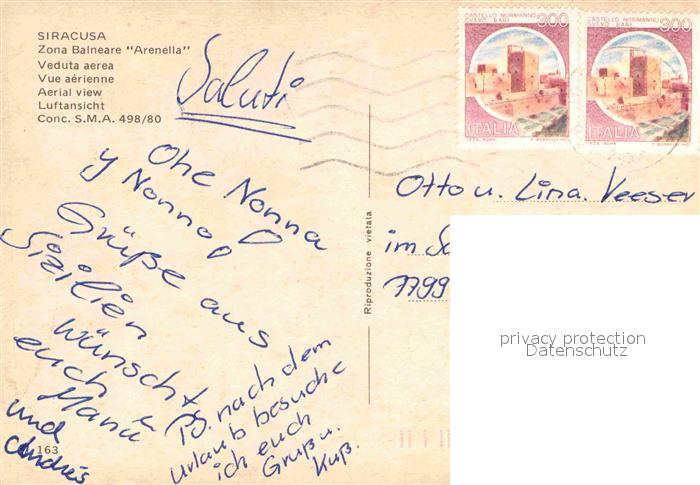 SIRACUSA
Zona Balneare "Arenella"
Veduta aerea
Vue aérienne
Aerial view
Luftansicht
Conc. S.M.A. 498/80
Saluti
Ohe Nonna
y Nonno
Grüße aus
Sizilien
wünscht
euch
Manu
und
Andrés
PS. nach dem
Urlaub besuche
ich euch
Gruß u.
Kuß.
163
Riproduzione vietata
CASTELLO NORMANNO
SVEVO BARI
300
ITALIA
CASTELLO NORMANNO
SVEVO BARI
300
ITALIA
Otto u. Lina Veeser
im
7799
privacy protection
Datenschutz